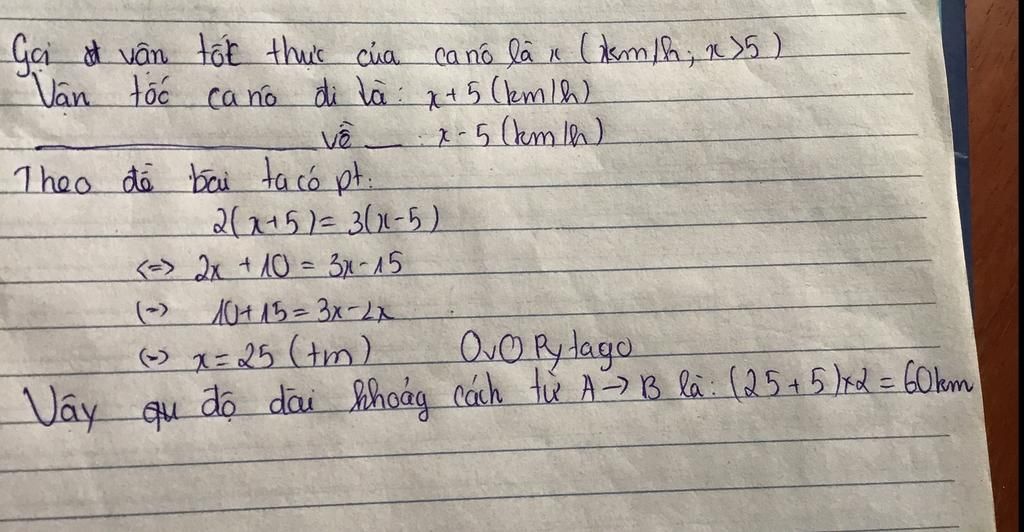 Gọi vận tốt thực của ca nô là x (km/h; x>5)
Vận tốc ca nô đi là: x+5 (km/h)
về : x-5 (km/h)
Theo đề bài ta có pt:
2(x+5)=3(x-5)
<=> 2x +10 = 3x-15
(=) 10+15=3x-2x
(=) x=25 (tm) OvO Pytago
Vậy độ dài khoảg cách từ A→B là: (25+5)x2=60km